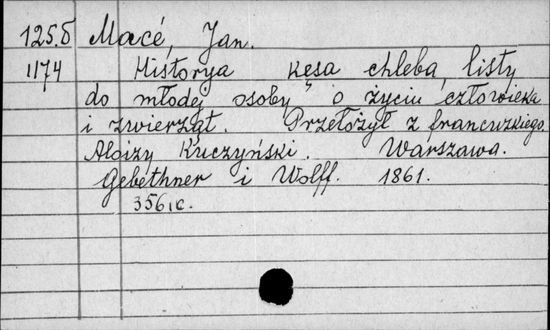 125.5 Macé, Jan.
1174 Historya kęsa chleba, listy
do młodej osoby o życiu człowieka
i zwierząt. Przełożył z francuzkiego
Aloizy Kuczyński. Warszawa.
Gebethner i Wolff. 1861.
356, c.